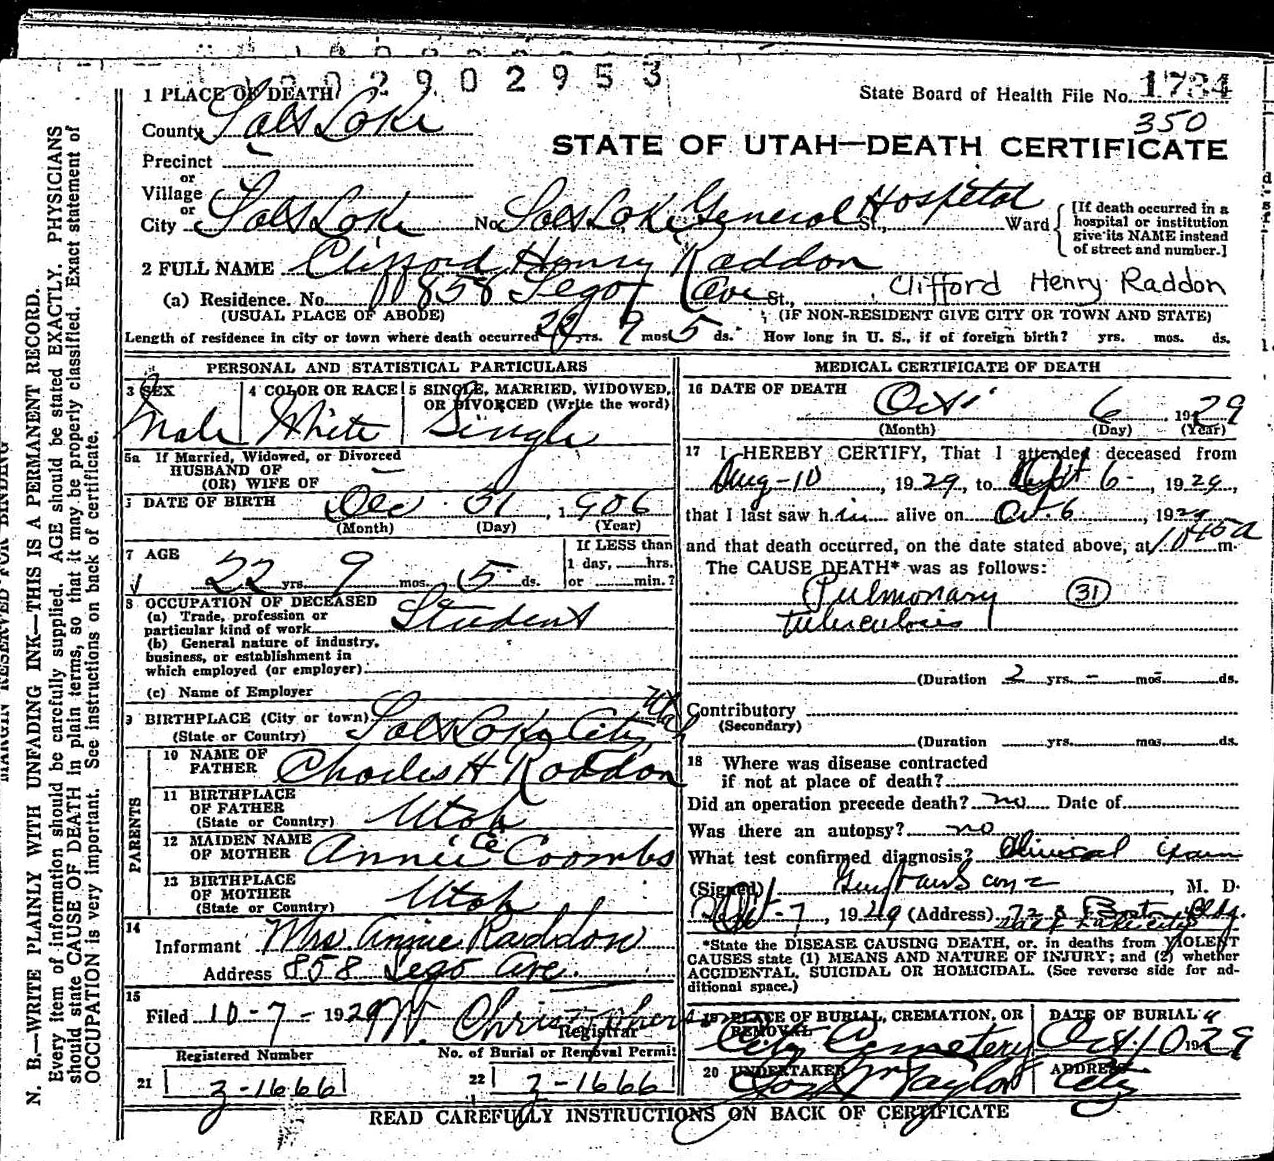 2902953
State Board of Health File No. 1784
350
1 PLACE OF DEATH
County Salt Lake
STATE OF UTAH—DEATH CERTIFICATE
Precinct
or
Village
or
City Salt Lake No. Salt Lake General Hospital St., Ward
[If death occurred in a hospital or institution give its NAME instead of street and number.]
2 FULL NAME Clifford Henry Raddon
Clifford Henry Raddon
(a) Residence. No. 858 Lego Ave St.,
(USUAL PLACE OF ABODE) (IF NON-RESIDENT GIVE CITY OR TOWN AND STATE)
Length of residence in city or town where death occurred 22 yrs. 9 mos. 5 ds. How long in U. S., if of foreign birth? yrs. mos. ds.
PERSONAL AND STATISTICAL PARTICULARS
3 SEX Male
4 COLOR OR RACE White
5 SINGLE, MARRIED, WIDOWED, OR DIVORCED (Write the word) Single
5a If Married, Widowed, or Divorced
HUSBAND OF
(OR) WIFE OF
6 DATE OF BIRTH Dec 31, 1906
(Month) (Day) (Year)
7 AGE 22 yrs. 9 mos. 5 ds.
If LESS than
1 day, hrs.
or min.?
8 OCCUPATION OF DECEASED
(a) Trade, profession or
particular kind of work Student
(b) General nature of industry,
business, or establishment in
which employed (or employer)
(c) Name of Employer
9 BIRTHPLACE (City or town) Salt Lake City Utah
(State or Country)
PARENTS
10 NAME OF FATHER Charles H Raddon
11 BIRTHPLACE OF FATHER Utah
(State or Country)
12 MAIDEN NAME OF MOTHER Annie E Coombs
13 BIRTHPLACE OF MOTHER Utah
(State or Country)
14
Informant Mrs Annie Raddon
Address 858 Lego Ave.
15
Filed 10-7-1929 W. Christopherson
Registrar
Registered Number No. of Burial or Removal Permit
21 3-1666 22 3-1666
MEDICAL CERTIFICATE OF DEATH
16 DATE OF DEATH
Oct. 6, 1929
(Month) (Day) (Year)
17 I HEREBY CERTIFY, That I attended deceased from
Aug-10, 1929, to Oct 6-, 1929,
that I last saw him alive on Oct. 6, 1929
and that death occurred, on the date stated above, at 1045a m.
The CAUSE DEATH* was as follows:
Pulmonary (31)
tuberculosis
(Duration 2 yrs. - mos. - ds.
Contributory
(Secondary)
(Duration yrs. mos. ds.
18 Where was disease contracted
if not at place of death?
Did an operation precede death? no Date of
Was there an autopsy? no
What test confirmed diagnosis? Clinical Exam
(Signed) , M. D.
Oct-7, 1929 (Address) Bldg.
Salt Lake City
*State the DISEASE CAUSING DEATH, or, in deaths from VIOLENT
CAUSES state (1) MEANS AND NATURE OF INJURY; and (2) whether
ACCIDENTAL, SUICIDAL OR HOMICIDAL. (See reverse side for additional space.)
19 PLACE OF BURIAL, CREMATION, OR REMOVAL City Cemetery
DATE OF BURIAL Oct. 10 1929
20 UNDERTAKER Jos Wm Taylor
ADDRESS City
READ CAREFULLY INSTRUCTIONS ON BACK OF CERTIFICATE
MARGIN RESERVED FOR BINDING
N. B.—WRITE PLAINLY WITH UNFADING INK—THIS IS A PERMANENT RECORD.
Every item of information should be carefully supplied. AGE should be stated EXACTLY. PHYSICIANS
should state CAUSE OF DEATH in plain terms, so that it may be properly classified. Exact statement of
OCCUPATION is very important. See instructions on back of certificate.